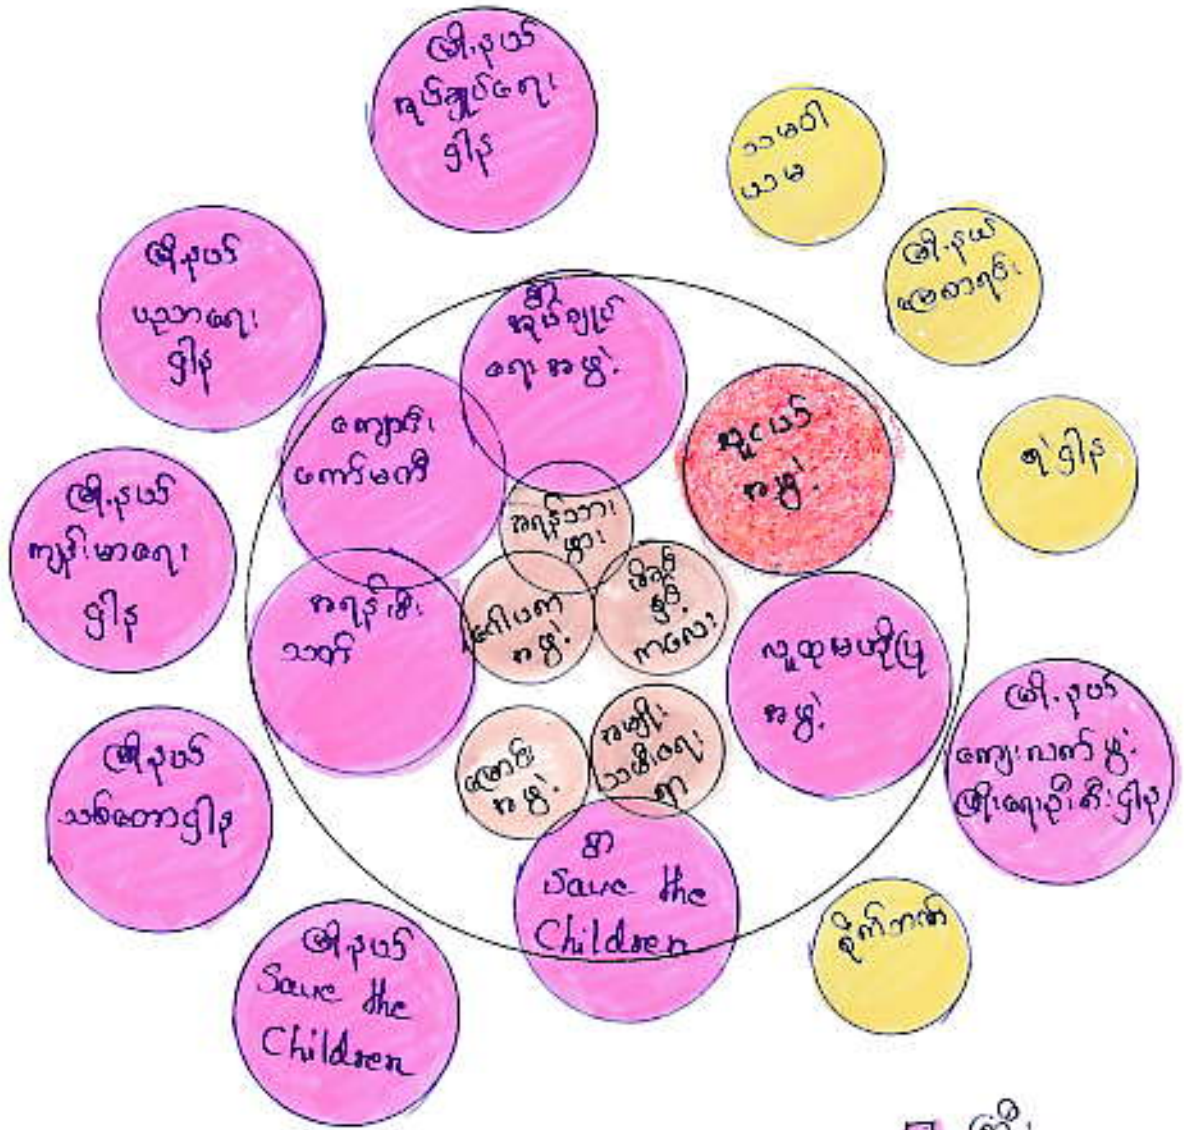 မြို့နယ်
အုပ်ချုပ်ရေး
ဌာန
သမဝါ
ယမ
မြို့နယ်
မြေစာရင်း
ရဲဌာန
မြို့နယ်
ပညာရေး
ဌာန
ရွာ
အုပ်ချုပ်
ရေးအဖွဲ့
ကျောင်း
ကော်မတီ
လူငယ်
အဖွဲ့
မြို့နယ်
ကျန်းမာရေး
ဌာန
အရန်မီး
သတ်
အရန်သား
ဖွား
ဂေါပက
အဖွဲ့
မိခင်
နှင့်
ကလေး
လူထုဗဟိုပြု
အဖွဲ့
မြို့နယ်
ကျေးလက်ဖွံ့
ဖြိုးရေးဦးစီးဌာန
မြို့နယ်
သစ်တောဌာန
မြောင်း
အဖွဲ့
အမျိုး
သမီးရေး
ရာ
ရွာ
Save the
Children
စိုက်ဘဏ်
မြို့နယ်
Save the
Children
ကြီး